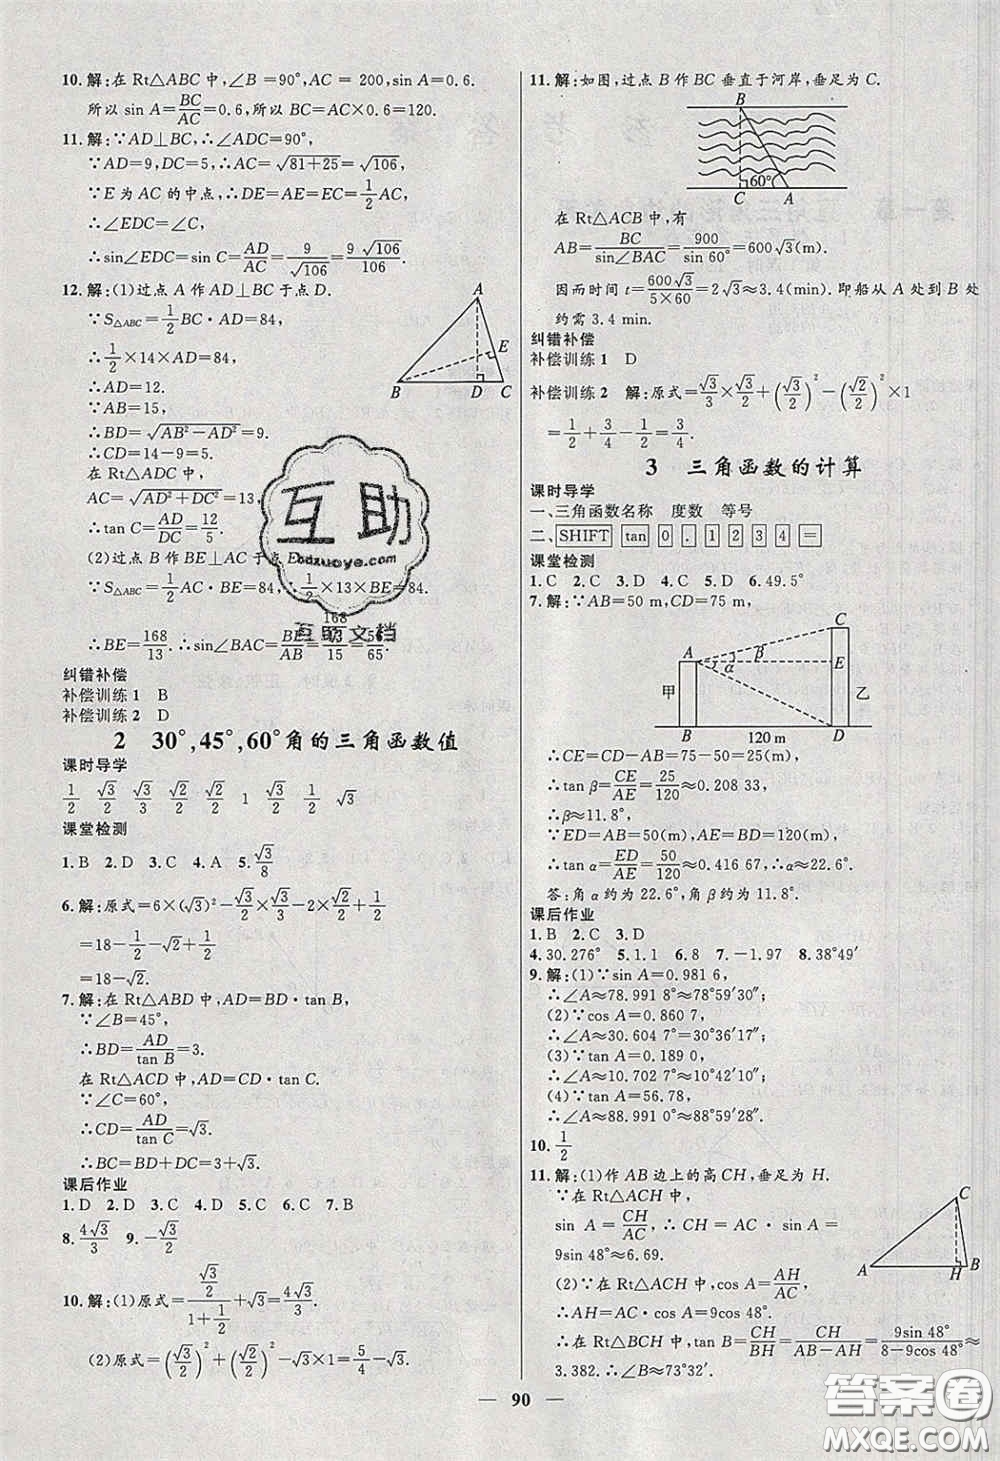 10. 解:在 Rt△ABC 中,∠B=90°,AC = 200,sin A=0.6.
所以 sin A=BC/AC=0.6,所以 BC=AC×0.6=120.
11. 解:∵AD⊥BC,∴∠ADC=90°,
∵AD=9,DC=5,∴AC=√(81+25)=√106,
∵E 为 AC 的中点,∴DE=AE=EC=1/2AC,
∴∠EDC=∠C,
∴sin∠EDC=sin∠C=AD/AC=9/√106=9√106/106.
12. 解:(1)过点 A 作 AD⊥BC 于点 D.
∵S△ABC=1/2BC·AD=84,
∴1/2×14×AD=84,
∴AD=12.
∵AB=15,
∴BD=√(AB²-AD²)=9.
∴CD=14-9=5.
在 Rt△ADC 中,
AC=√(AD²+DC²)=13,
∴tan C=AD/DC=12/5.
(2)过点 B 作 BE⊥AC 于点 E,
∵S△ABC=1/2AC·BE=84,∴1/2×13×BE=84,
∴BE=168/13.∴sin∠BAC=BE/AB=(168/13)/15=56/65.
纠错补偿
补偿训练 1 B
补偿训练 2 D
2 30°,45°,60°角的三角函数值
课时导学
1/2 √3/2 √3/3 √2/2 √2/2 1 √3/2 1/2 √3
课堂检测
1. B 2. D 3. C 4. A 5. √3/8
6. 解:原式=6×(√3)²-√3/2×√3/2-2×√2/2+1/2
=18-1/2-√2+1/2
=18-√2.
7. 解:在 Rt△ABD 中,AD=BD·tan B,
∵∠B=45°,
∴BD=AD/tan B=3.
在 Rt△ACD 中,AD=CD·tan C.
∵∠C=60°,
∴CD=AD/tan C=√3.
∴BC=BD+DC=3+√3.
课后作业
1. D 2. D 3. C 4. C 5. C 6. C 7. B
8. 4√3/3 9. -√3
10. 解:(1)原式=(√3/2)/(1+1/2)+√3=4√3/3.
(2)原式=(√3/2)²+(√2/2)²-√3×1=5/4-√3.
11. 解:如图,过点 B 作 BC 垂直于河岸,垂足为 C.
B
60°
C A
在 Rt△ACB 中,有
AB=BC/sin∠BAC=900/sin 60°=600√3(m).
因而时间 t=600√3/(5×60)=2√3≈3.4(min). 即船从 A 处到 B 处
约需 3.4 min.
纠错补偿
补偿训练 1 D
补偿训练 2 解:原式=√3/3×√3/2+(√3/2)²-(√2/2)²×1
=1/2+3/4-1/2=3/4.
3 三角函数的计算
课时导学
一、三角函数名称 度数 等号
二、SHIFT tan 0 . 1 2 3 4 =
课堂检测
1. C 2. C 3. D 4. C 5. D 6. 49.5°
7. 解:∵AB=50 m,CD=75 m,
C
A β α E
甲 乙
B 120 m D
∴CE=CD-AB=75-50=25(m).
∴tan β=CE/AE=25/120≈0.208 33,
∴β≈11.8°.
∵ED=AB=50(m),AE=BD=120(m),
∴tan α=ED/AE=50/120≈0.416 67,∴α≈22.6°.
答:角 α 约为 22.6°,角 β 约为 11.8°.
课后作业
1. B 2. C 3. D
4. 30.276° 5. 1.1 6. 8 7. -1.97 8. 38°49′
9. 解:(1)∵sin A=0.981 6,
∴∠A≈78.991 8°≈78°59′30″;
(2)∵cos A=0.860 7,
∴∠A≈30.604 7°=30°36′17″;
(3)∵tan A=0.189 0,
∴∠A≈10.702 7°≈10°42′10″;
(4)∵tan A=56.78,
∴∠A≈88.991 0°≈88°59′28″.
10. 1/2
11. 解:(1)作 AB 边上的高 CH,垂足为 H.
∵在 Rt△ACH 中,
sin A=CH/AC,∴CH=AC·sin A=
9sin 48°≈6.69.
(2)∵在 Rt△ACH 中,cos A=AH/AC,
∴AH=AC·cos A=9cos 48°.
∴在 Rt△BCH 中,tan B=CH/BH=CH/(AB-AH)=9sin 48°/(8-9cos 48°)≈
3.382. ∴∠B≈73°32′.
A
E
B D C
C
A H B
90
互助
bdzuoye.com
互助文档
答案圈
MXQE.COM